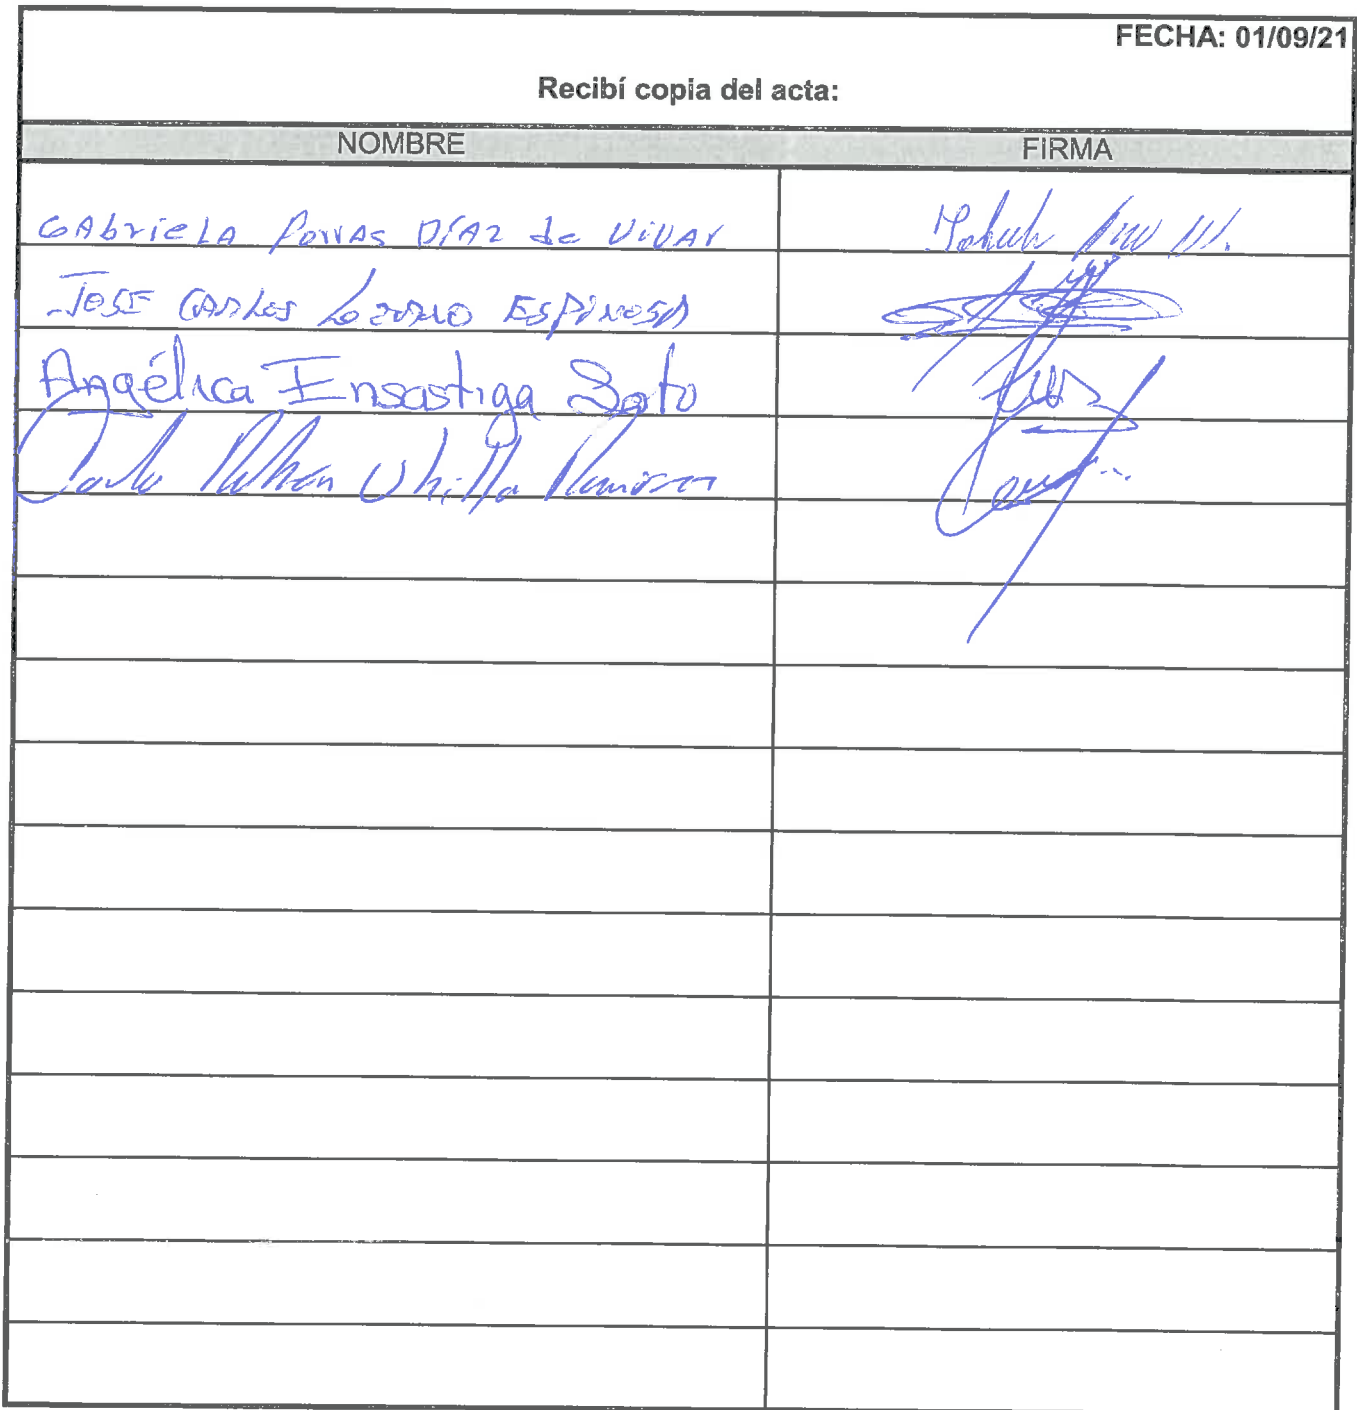 FECHA: 01/09/21
Recibí copia del acta:
NOMBRE FIRMA
GAbrieLA Porras DÍAz de ViVAr
JOSE CARLOS LOZANO ESPINOSA
Angélica Ensastiga Soto
Ramirez